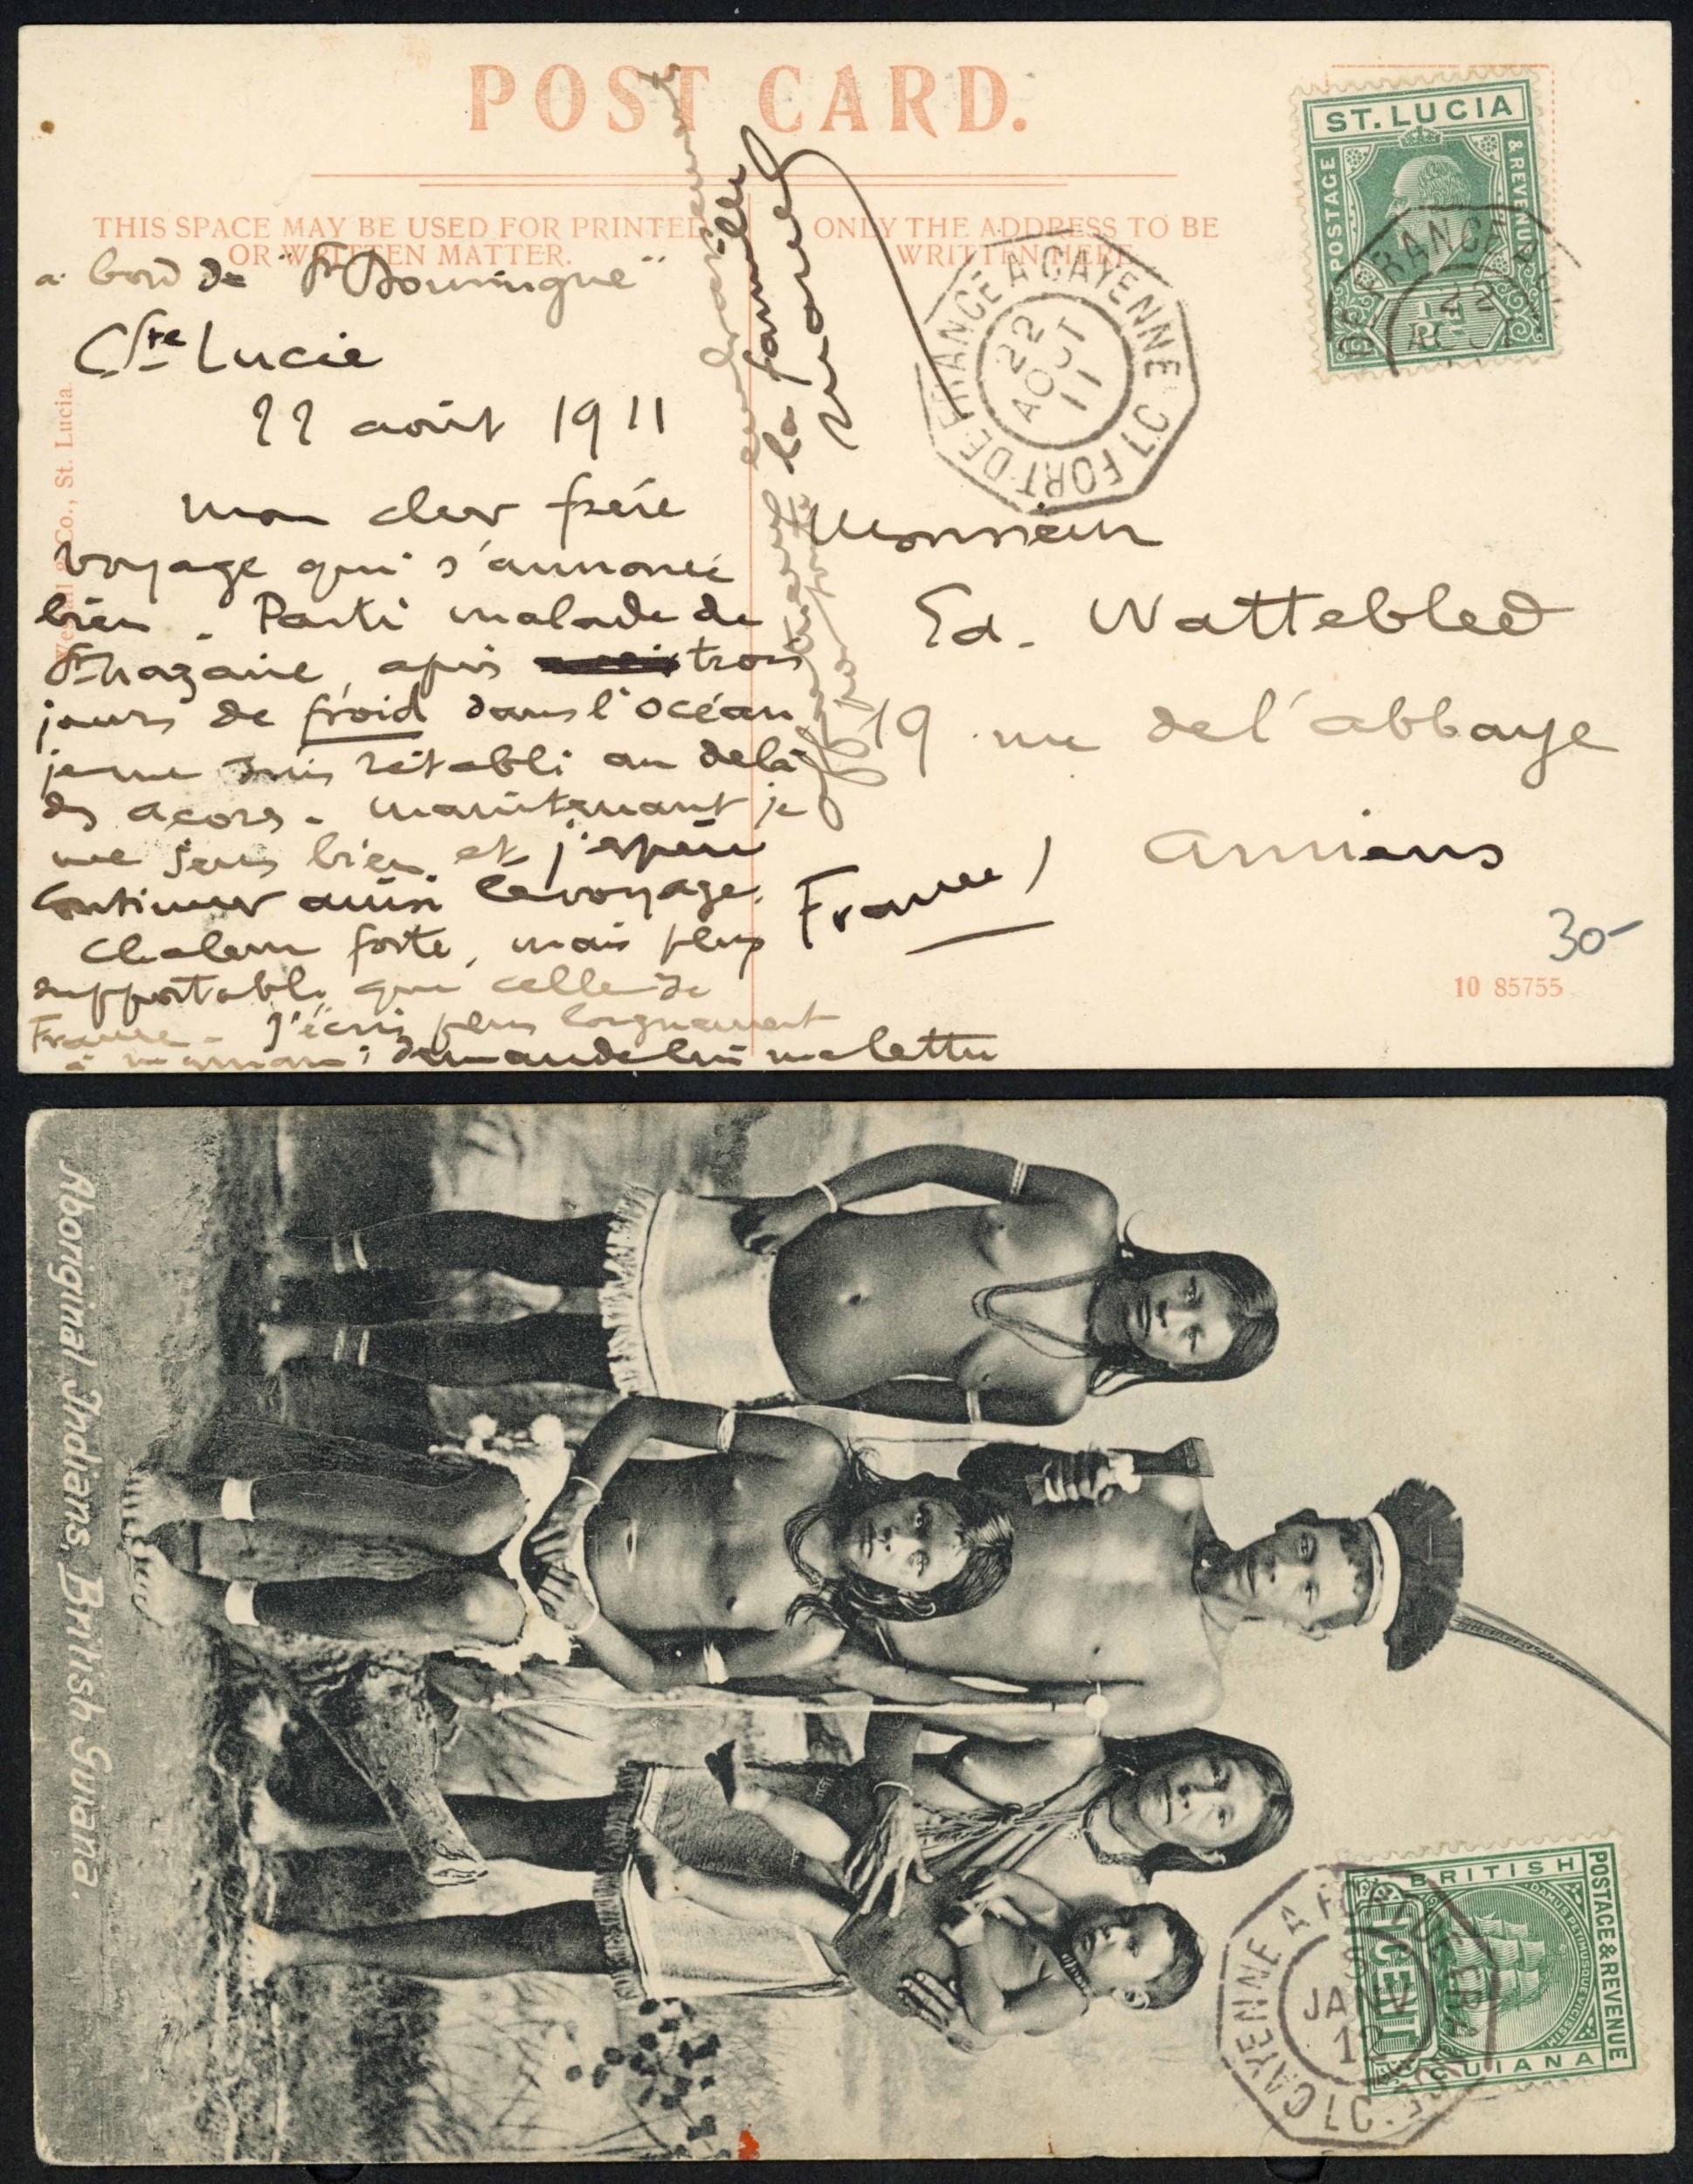 POST CARD.
THIS SPACE MAY BE USED FOR PRINTED
OR WRITTEN MATTER.
ONLY THE ADDRESS TO BE
WRITTEN HERE.
ST. LUCIA
POSTAGE
& REVENUE
FORT DE FRANCE A CAYENNE L.C
22
AOUT
11
& Co., St. Lucia
a bord de "St Domingue"
Ste Lucie
22 août 1911
mon cher frère
Voyage qui s'annonce
bien. Parti malade de
St Nazaire, après trois
jours de froid dans l'océan
je me suis rétabli au delà
des açores. maintenant je
me sens bien et j'espère
continuer ainsi le voyage.
Chaleur forte, mais plus
supportable que celle de
France. J'écris plus longuement
à maman; demande lui ma lettre
la famille
Monsieur
Ed. Wattebled
19 rue de l'abbaye
Amiens
France
30-
10 85755
Aboriginal Indians, British Guiana.
BRITISH
GUIANA
POSTAGE & REVENUE
DAMUS PETIMUSQUE VICISSIM
1 CENT
CAYENNE A FORT DE FRANCE L C
JANV
12